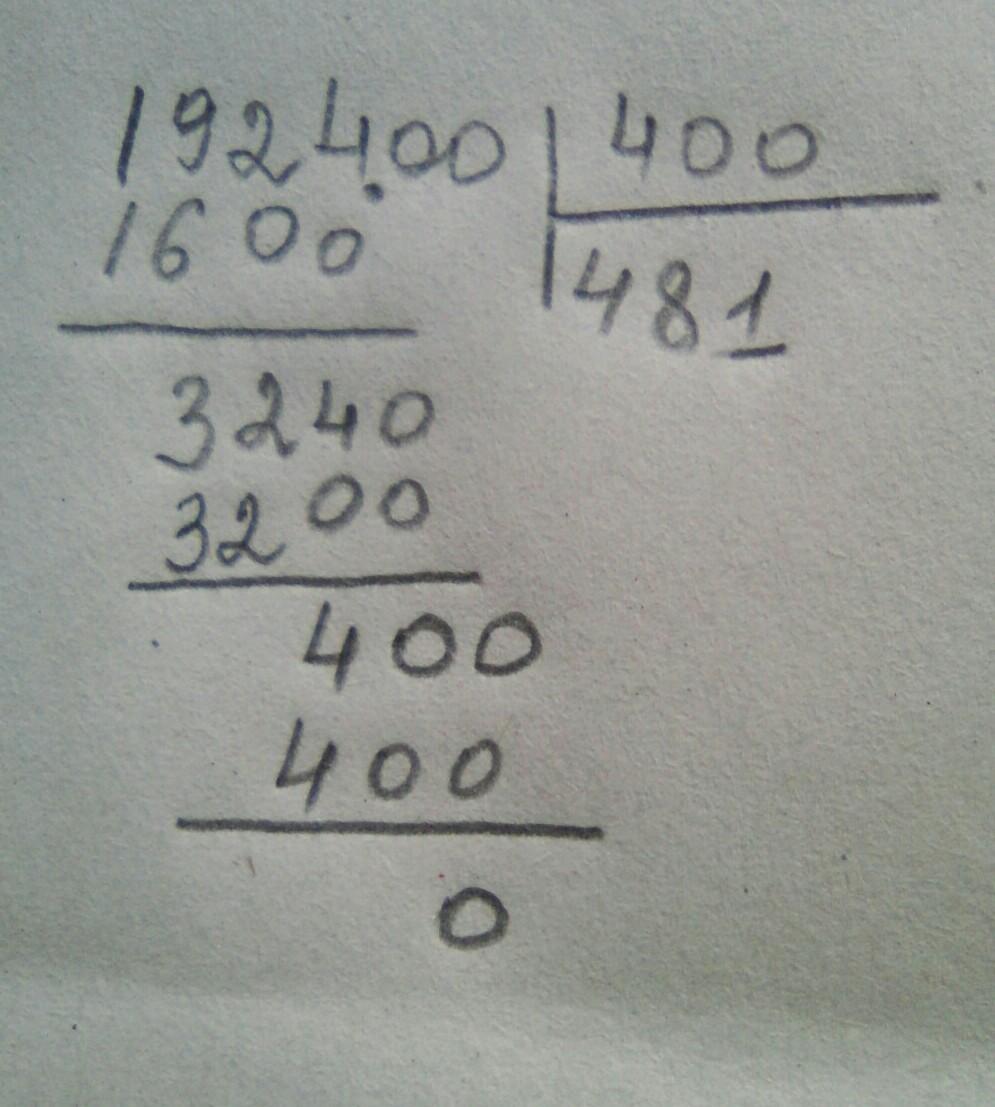 192400 400
1600 481
3240
3200
400
400
0